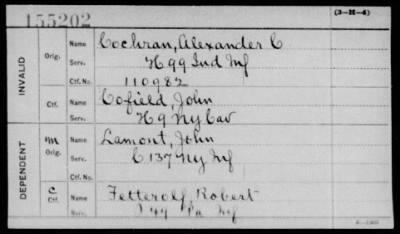 155202
(3-H-4)
INVALID
Orig. Name Cochran, Alexander C
Serv. H 99 Ind Inf
Ctf. No. 110982
Ctf. Name Cofield, John
Serv. H 9 Ny Cav
DEPENDENT
m Orig. Name Lamont, John
Serv. C 137 Ny Inf
C Ctf. Name Fetterolf, Robert
Serv. Pa Inf